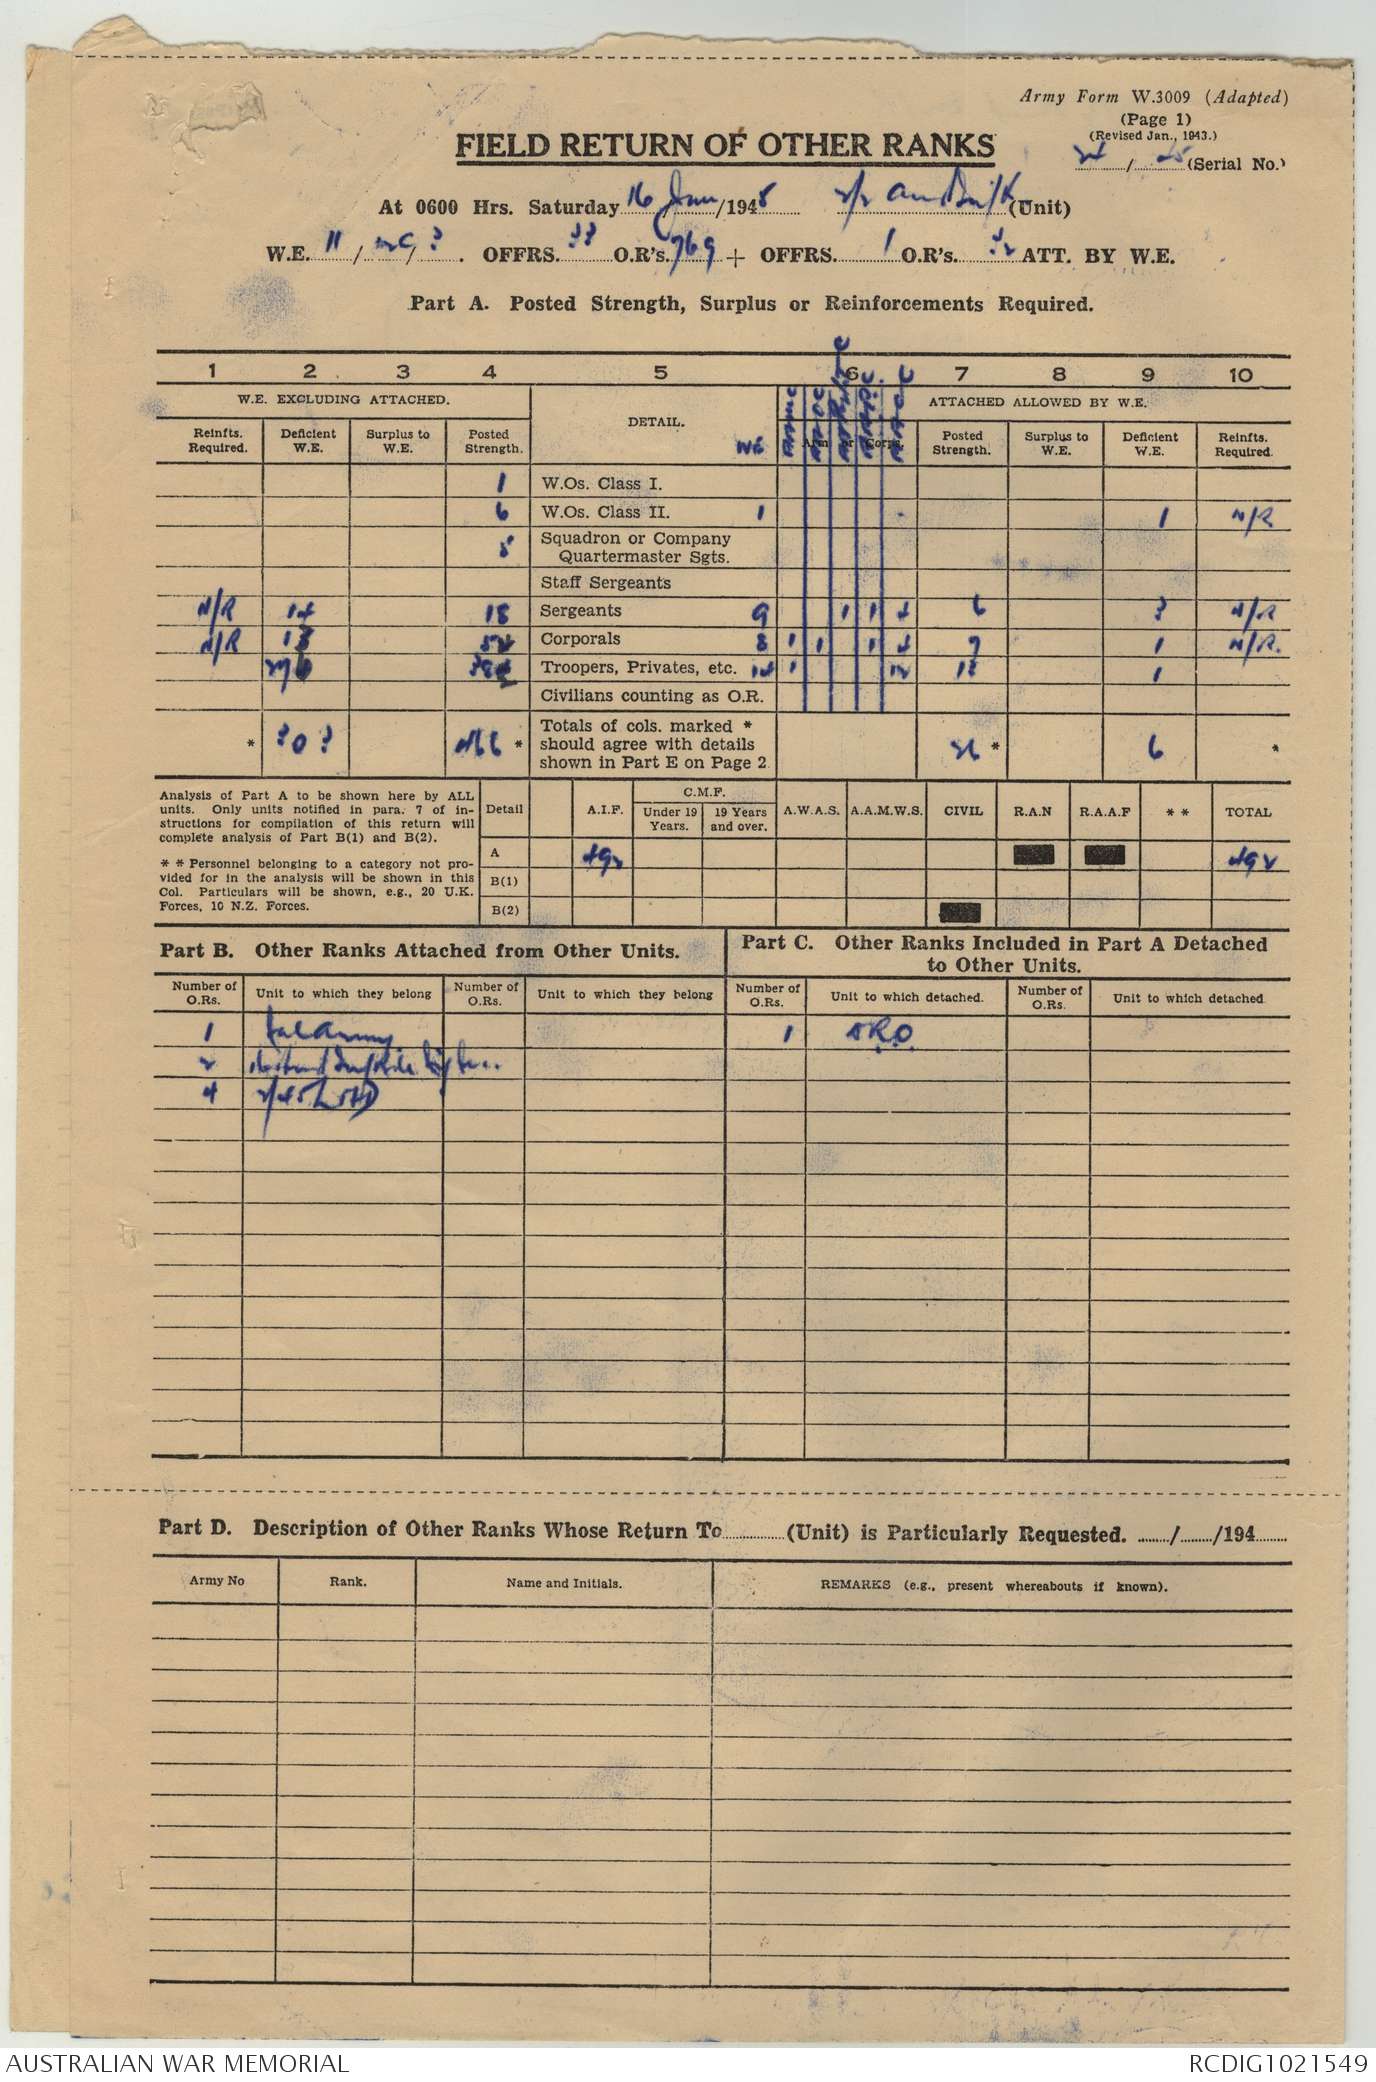 Army Form W.3009 (Adapted)
(Page 1)
(Revised Jan., 1943.)
FIELD RETURN OF OTHER RANKS
/ (Serial No.)
At 0600 Hrs. Saturday 16 Jan /194 (Unit)
W.E. 11 / / . OFFRS. O.R's. 769 + OFFRS. 1 O.R's. ATT. BY W.E.
Part A. Posted Strength, Surplus or Reinforcements Required.
1 2 3 4 5 6 7 8 9 10
W.E. EXCLUDING ATTACHED.
DETAIL.
ATTACHED ALLOWED BY W.E.
Reinfts. Required.
Deficient W.E.
Surplus to W.E.
Posted Strength.
WE
Arm or Corps.
Posted Strength.
Surplus to W.E.
Deficient W.E.
Reinfts. Required.
1 W.Os. Class I.
6 W.Os. Class II. 1 1 N/R
Squadron or Company
Quartermaster Sgts.
Staff Sergeants
N/R 14 18 Sergeants 9 1 1 4 6 3 N/R
N/R Corporals 8 1 1 1 4 7 1 N/R.
Troopers, Privates, etc. 14 1 12 13 1
Civilians counting as O.R.
* 303 466 * Totals of cols. marked * should agree with details shown in Part E on Page 2 26 * 6 *
Analysis of Part A to be shown here by ALL
units. Only units notified in para. 7 of in-
structions for compilation of this return will
complete analysis of Part B(1) and B(2).
* * Personnel belonging to a category not pro-
vided for in the analysis will be shown in this
Col. Particulars will be shown, e.g., 20 U.K.
Forces, 10 N.Z. Forces.
Detail A.I.F. C.M.F. Under 19 Years. 19 Years and over. A.W.A.S. A.A.M.W.S. CIVIL R.A.N R.A.A.F * * TOTAL
A 492 492
B(1)
B(2)
Part B. Other Ranks Attached from Other Units.
Part C. Other Ranks Included in Part A Detached
to Other Units.
Number of O.Rs.
Unit to which they belong
Number of O.Rs.
Unit to which they belong
Number of O.Rs.
Unit to which detached.
Number of O.Rs.
Unit to which detached
1 Army 1
2
4
Part D. Description of Other Ranks Whose Return To (Unit) is Particularly Requested. / /194
Army No
Rank.
Name and Initials.
REMARKS (e.g., present whereabouts if known).
AUSTRALIAN WAR MEMORIAL
RCDIG1021549